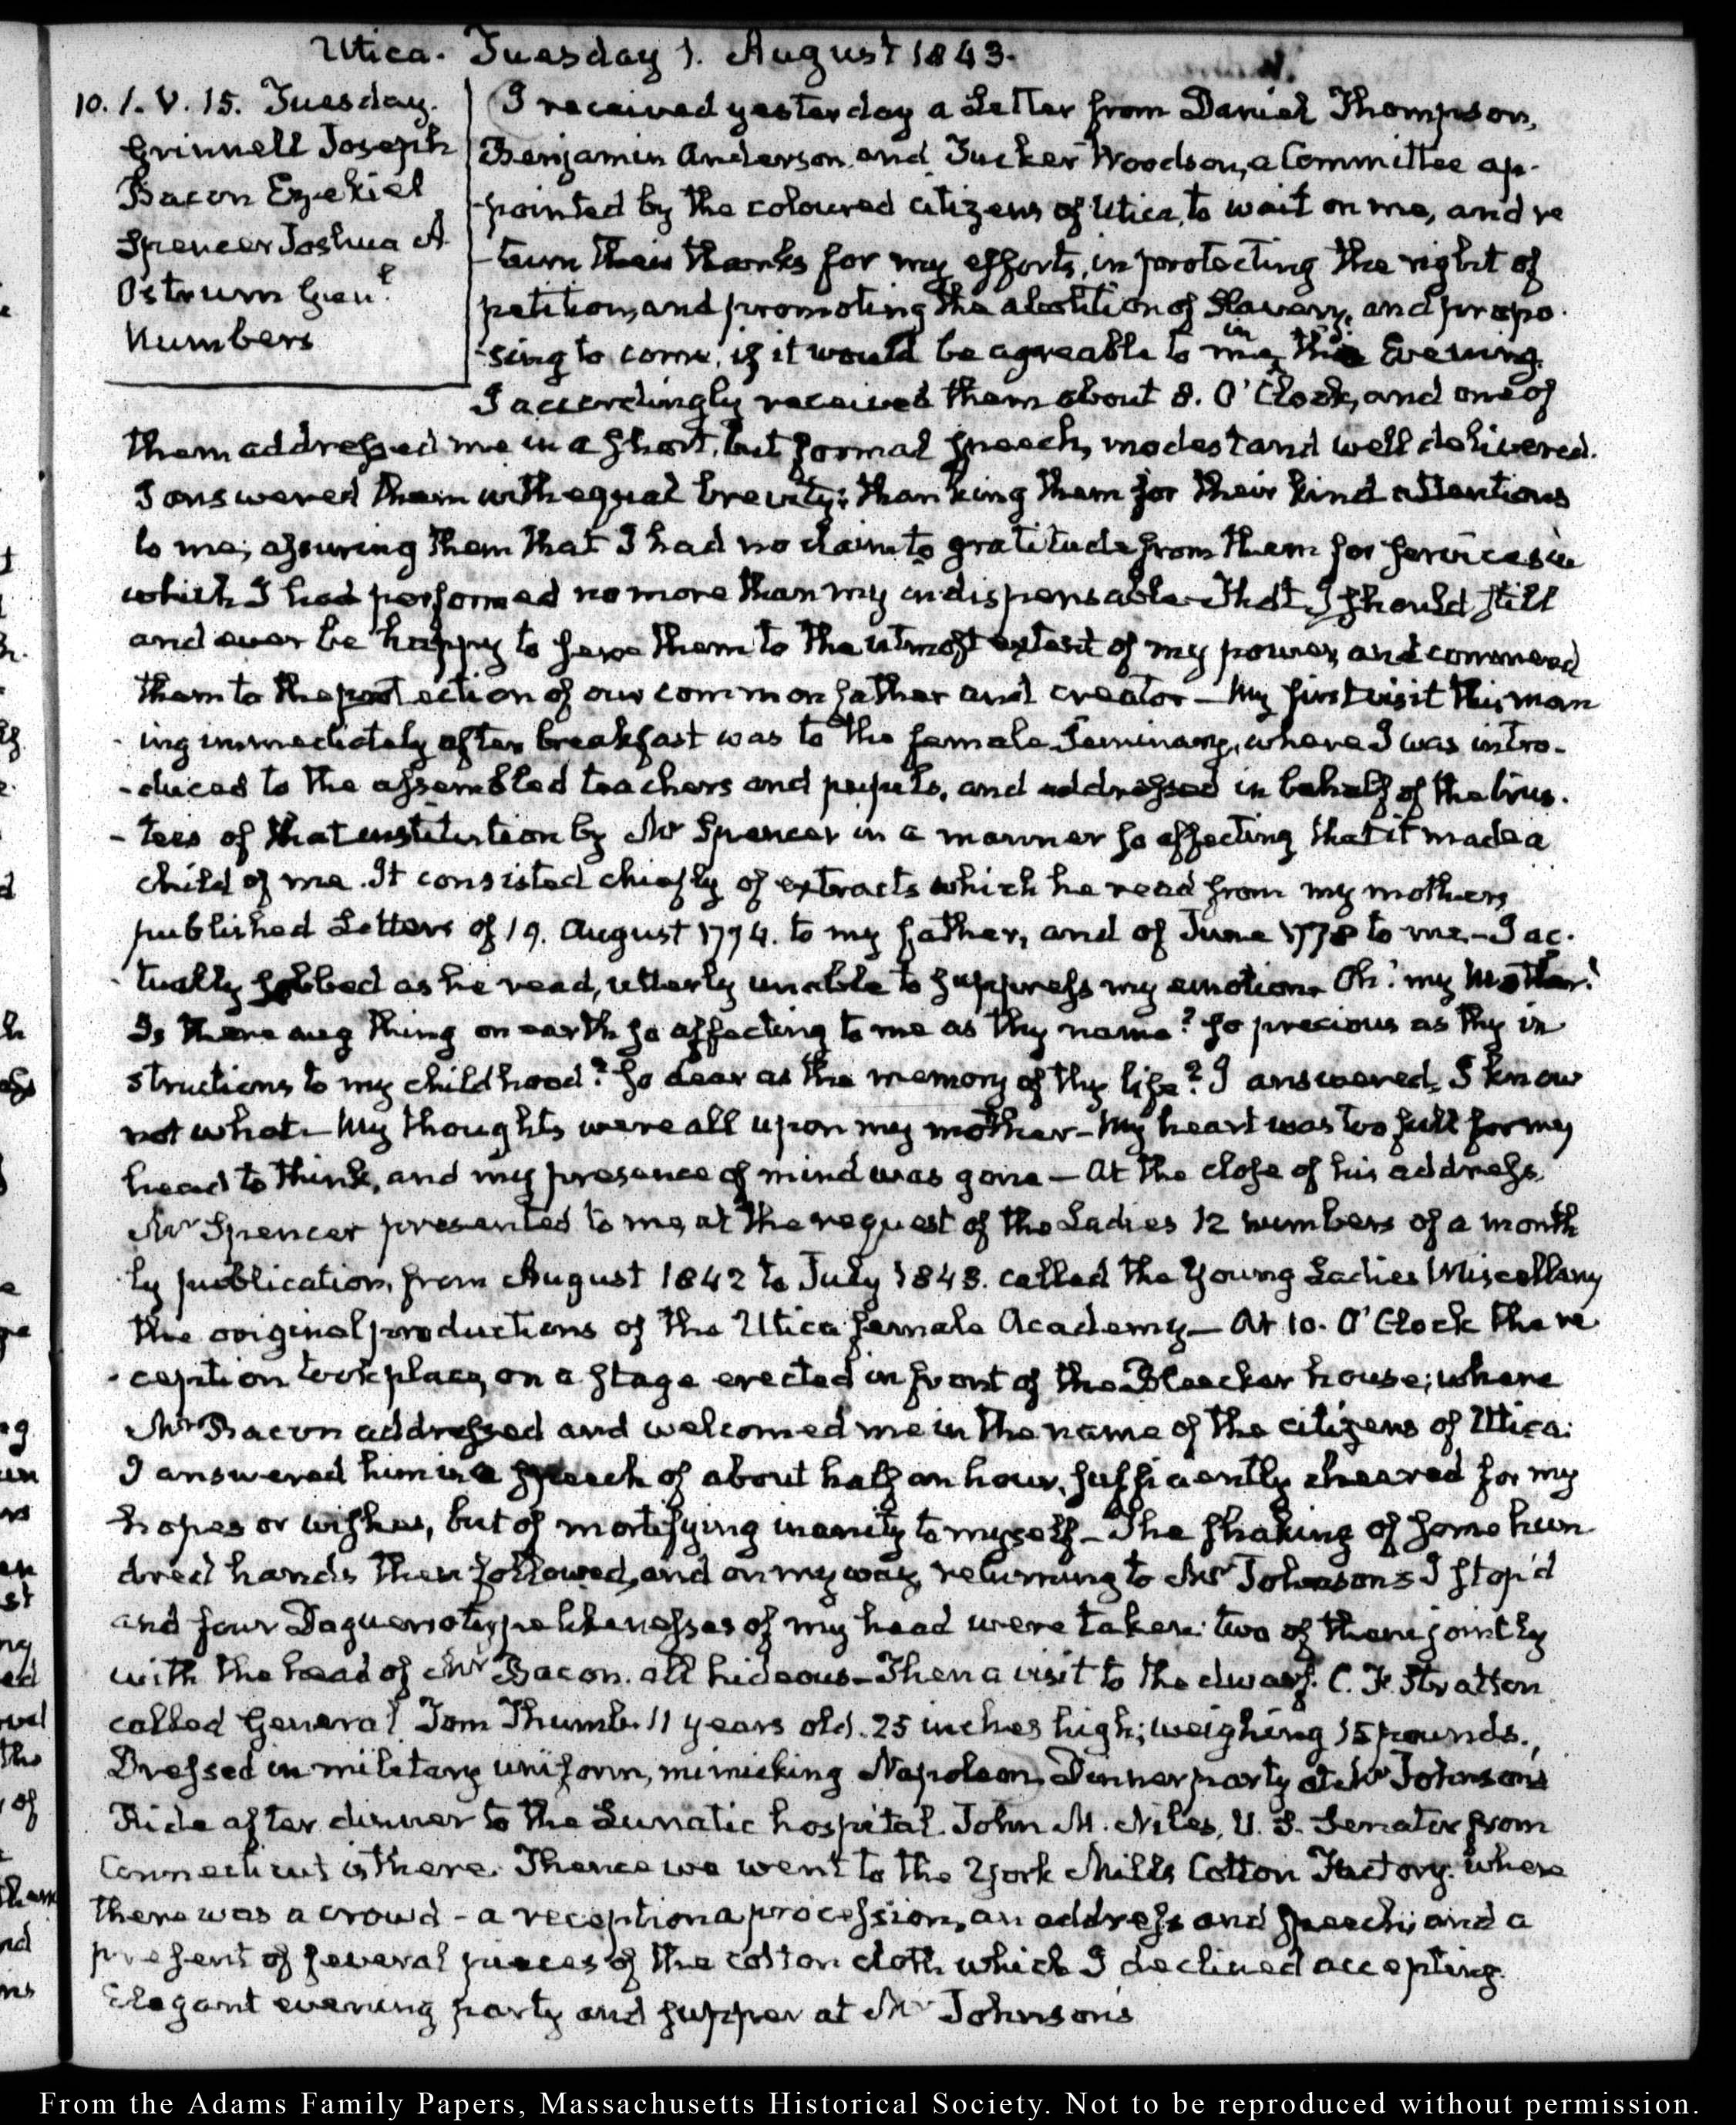 Utica. Tuesday 1. August 1843.
10. I. V. 15. Tuesday.
Grinnell Joseph
Bacon Ezekiel
Spencer Joshua A
Ostrum Gen.l
Numbers
I received yesterday a Letter from Daniel Thompson,
Benjamin Anderson and Tucker Woodson, a Committee ap-
-pointed by the coloured citizens of Utica, to wait on me, and re
-turn their thanks for my efforts, in protecting the right of
petition, and promoting the abolition of Slavery, and propo-
-sing to come, if it would be agreable to me, in the Evening.
I accordingly received them about 8. O'Clock, and one of
them addressed me in a short, but formal speech, modest and well delivered.
I answered them with equal brevity; thanking them for their kind attentions
to me; assuring them that I had no claim to gratitude from them for services in
which I had performed no more than my indispensable—That I should still
and ever be happy to serve them to the utmost extent of my power, and commend
them to the protection of our common father and creator—My first visit this morn
-ing immediately after breakfast was to the female Seminary, where I was intro-
-duced to the assembled teachers and pupils, and addressed in behalf of the trus-
-tees of that institution by Mr Spencer in a manner so affecting that it made a
child of me. It consisted chiefly of extracts which he read from my mothers
published Letters of 19. August 1774. to my father, and of June 1778 to me—I ac-
-tually sobbed as he read, utterly unable to suppress my emotion. Oh! my Mother!
Is there any thing on earth so affecting to me as thy name? so precious as thy in
structions to my childhood? so dear as the memory of thy life? I answered, I know
not what—My thoughts were all upon my mother—My heart was too full for my
head to think, and my presence of mind was gone—At the close of his address,
Mr Spencer presented to me, at the request of the Ladies 12 numbers of a month
ly publication, from August 1842 to July 1843. called the Young Ladies Miscellany
the original productions of the Utica female Academy—At 10. O'Clock the re
-ception took place, on a stage erected in front of the Bleecker house; where
Mr Bacon addressed and welcomed me in the name of the citizens of Utica:
I answered him in a speech of about half an hour, sufficiently cheered for my
hopes or wishes, but of mortifying inanity to myself—The shaking of some hun
dred hands then followed, and on my way, returning to Mr Johnson's I stop'd
and four Daguerrotype likenesses of my head were taken: two of them jointly
with the head of Mr Bacon. all hideous—Then a visit to the dwarf. C. F. Stratton
called General Tom Thumb. 11 years old. 25 inches high; weighing 15 pounds.,
Dressed in military uniform, mimicking Napoleon, Dinner party at Mr Johnsons
Ride after dinner to the Lunatic hospital. John M. Niles, U. S. Senator from
Connecticut is there. Thence we went to the York Mills Cotton Factory. where
there was a crowd—a reception a procession, an address and speech; and a
present of several pieces of the cotton cloth which I declined accepting.
Elegant evening party and supper at Mr Johnson's
From the Adams Family Papers, Massachusetts Historical Society. Not to be reproduced without permission.